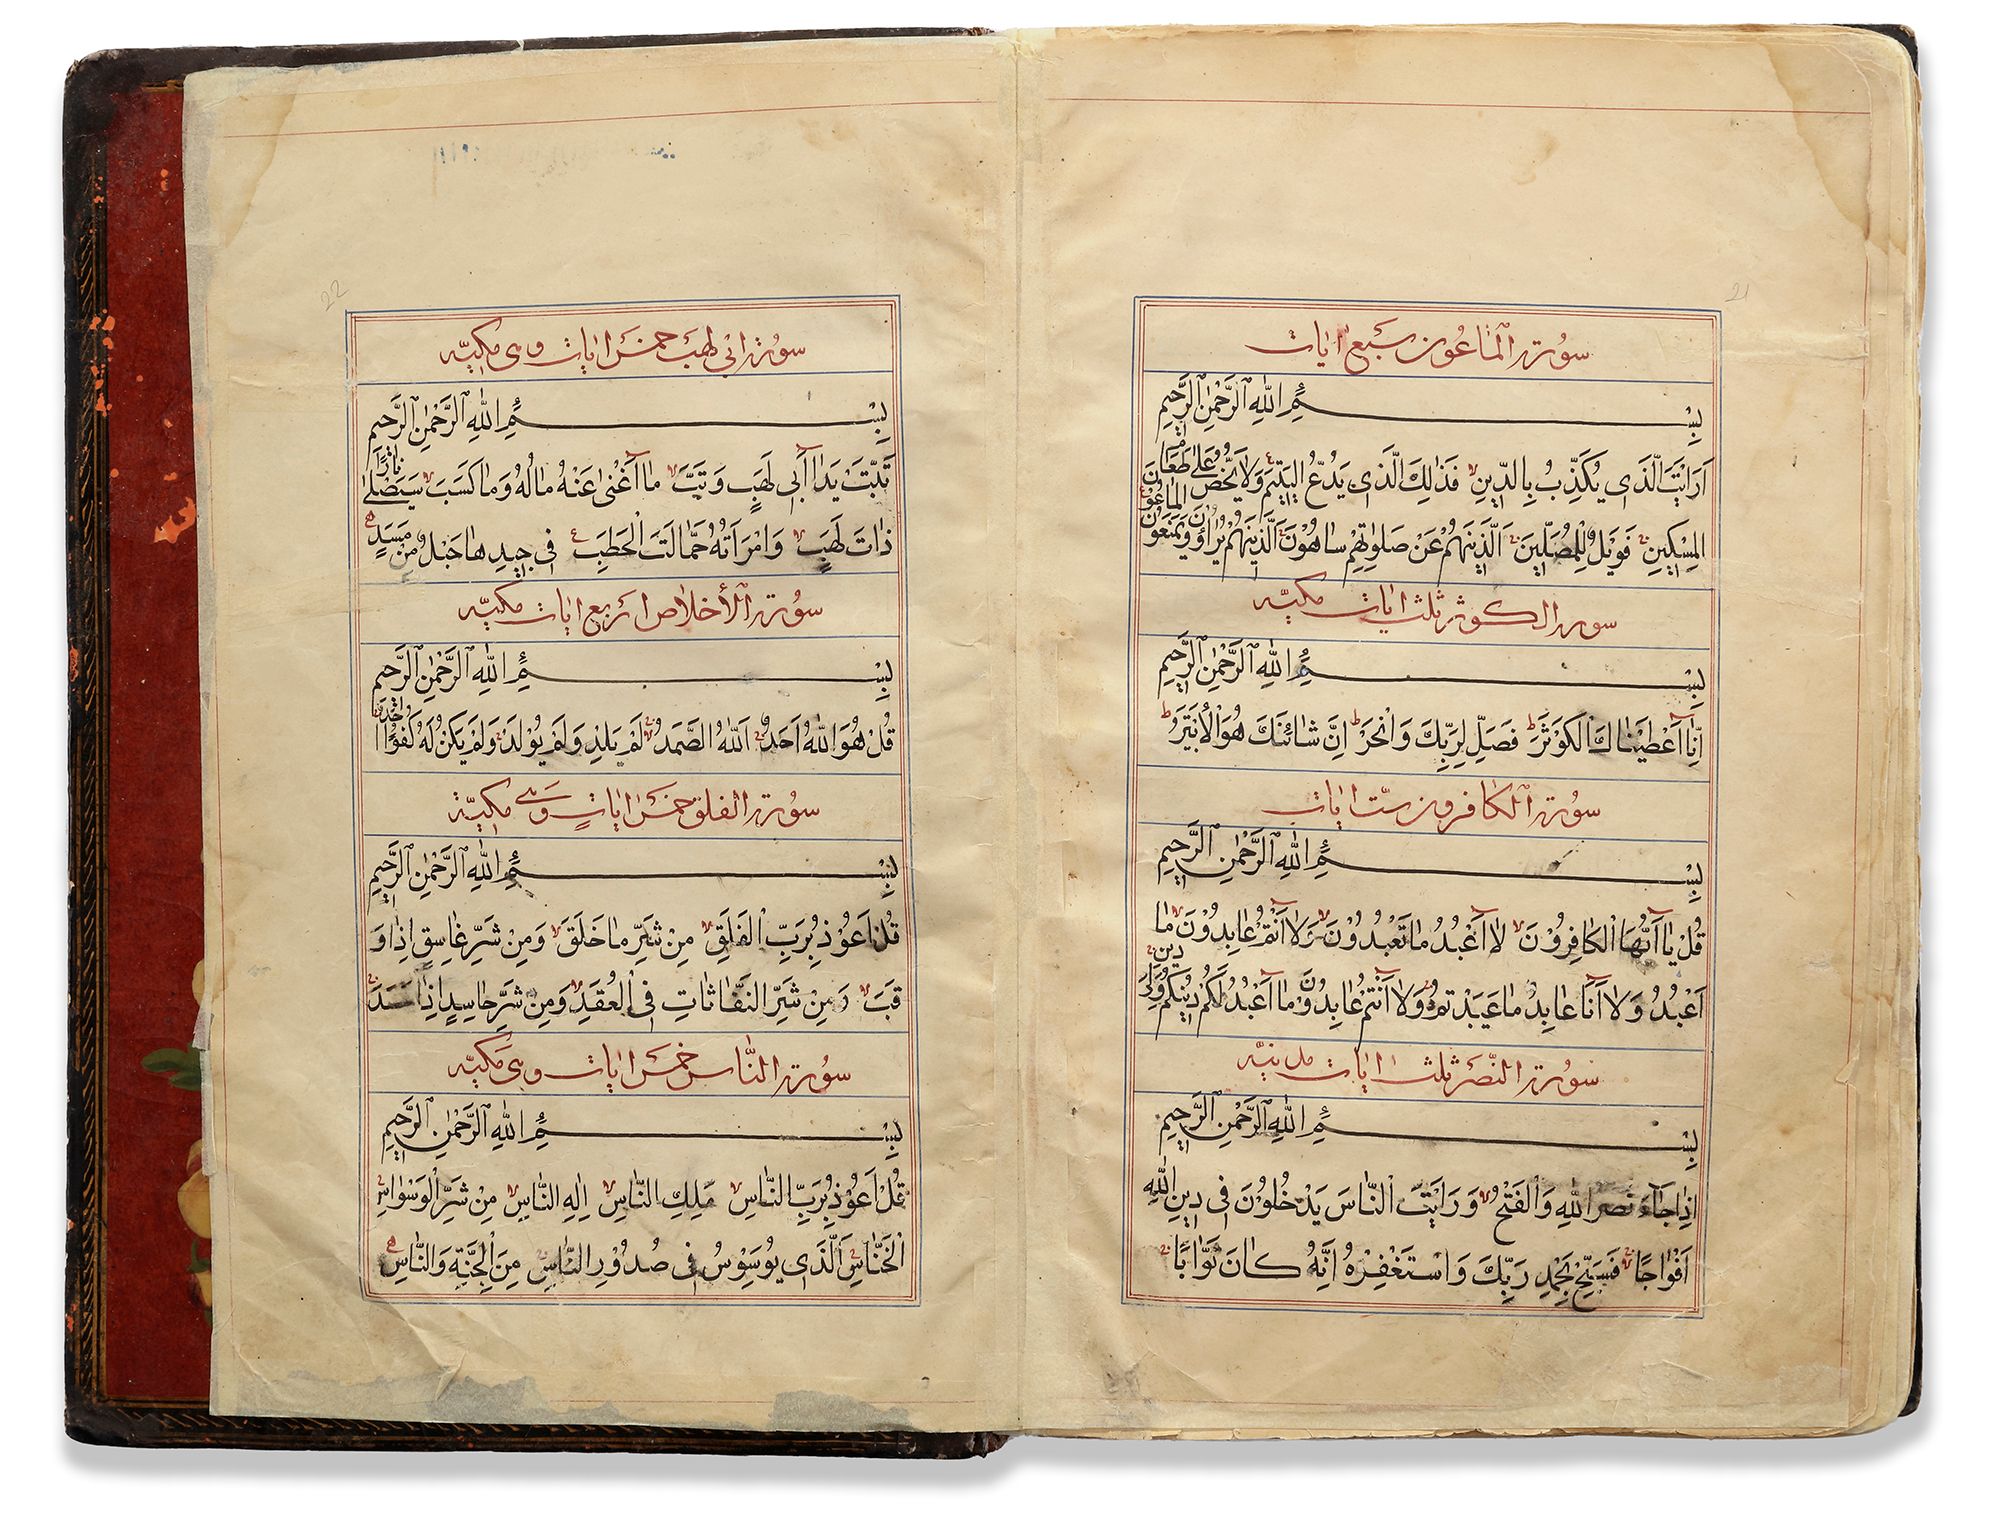 21
سورة الماعون سبع ايات
بِسْمِ اللّٰهِ الرَّحْمٰنِ الرَّحِيمِ
اَرَاَيْتَ الَّذى يُكَذِّبُ بِالدّينِ فَذٰلِكَ الَّذى يَدُعُّ الْيَتيمَ وَلَا يَحُضُّ عَلٰى طَعَامِ
الْمِسْكينِ فَوَيْلٌ لِلْمُصَلّينَ اَلَّذينَ هُمْ عَنْ صَلٰوتِهِمْ سَاهُونَ اَلَّذينَ هُمْ يُرَاؤُنَ وَيَمْنَعُونَ الْمَاعُونَ
سورة الكوثر ثلث ايات مكية
بِسْمِ اللّٰهِ الرَّحْمٰنِ الرَّحِيمِ
اِنَّا اَعْطَيْنَاكَ الْكَوْثَرَ فَصَلِّ لِرَبِّكَ وَانْحَرْ اِنَّ شَانِئَكَ هُوَ الْاَبْتَرُ
سورة الكافرون ست ايات
بِسْمِ اللّٰهِ الرَّحْمٰنِ الرَّحِيمِ
قُلْ يَا اَيُّهَا الْكَافِرُونَ لَا اَعْبُدُ مَا تَعْبُدُونَ وَلَا اَنْتُمْ عَابِدُونَ مَا
اَعْبُدُ وَلَا اَنَا عَابِدٌ مَا عَبَدْتُمْ وَلَا اَنْتُمْ عَابِدُونَ مَا اَعْبُدُ لَكُمْ دينُكُمْ وَلِىَ دينِ
سورة النصر ثلث ايات مدنية
بِسْمِ اللّٰهِ الرَّحْمٰنِ الرَّحِيمِ
اِذَا جَاءَ نَصْرُ اللّٰهِ وَالْفَتْحُ وَرَاَيْتَ النَّاسَ يَدْخُلُونَ فى دينِ اللّٰهِ
اَفْوَاجًا فَسَبِّحْ بِحَمْدِ رَبِّكَ وَاسْتَغْفِرْهُ اِنَّهُ كَانَ تَوَّابًا
22
سورة ابى لهب خمس ايات وهى مكية
بِسْمِ اللّٰهِ الرَّحْمٰنِ الرَّحِيمِ
تَبَّتْ يَدَا اَبى لَهَبٍ وَتَبَّ مَا اَغْنٰى عَنْهُ مَالُهُ وَمَا كَسَبَ سَيَصْلٰى نَارًا
ذَاتَ لَهَبٍ وَامْرَاَتُهُ حَمَّالَتَ الْحَطَبِ فى جيدِهَا حَبْلٌ مِنْ مَسَدٍ
سورة الأخلاص اربع ايات مكية
بِسْمِ اللّٰهِ الرَّحْمٰنِ الرَّحِيمِ
قُلْ هُوَ اللّٰهُ اَحَدٌ اَللّٰهُ الصَّمَدُ لَمْ يَلِدْ وَلَمْ يُولَدْ وَلَمْ يَكُنْ لَهُ كُفُوًا اَحَدٌ
سورة الفلق خمس ايات وهى مكية
بِسْمِ اللّٰهِ الرَّحْمٰنِ الرَّحِيمِ
قُلْ اَعُوذُ بِرَبِّ الْفَلَقِ مِنْ شَرِّ مَا خَلَقَ وَمِنْ شَرِّ غَاسِقٍ اِذَا وَ
قَبَ وَمِنْ شَرِّ النَّفَّاثَاتِ فِى الْعُقَدِ وَمِنْ شَرِّ حَاسِدٍ اِذَا حَسَدَ
سورة الناس خمس ايات وهى مكية
بِسْمِ اللّٰهِ الرَّحْمٰنِ الرَّحِيمِ
قُلْ اَعُوذُ بِرَبِّ النَّاسِ مَلِكِ النَّاسِ اِلٰهِ النَّاسِ مِنْ شَرِّ الْوَسْوَاسِ
الْخَنَّاسِ اَلَّذى يُوَسْوِسُ فى صُدُورِ النَّاسِ مِنَ الْجِنَّةِ وَالنَّاسِ